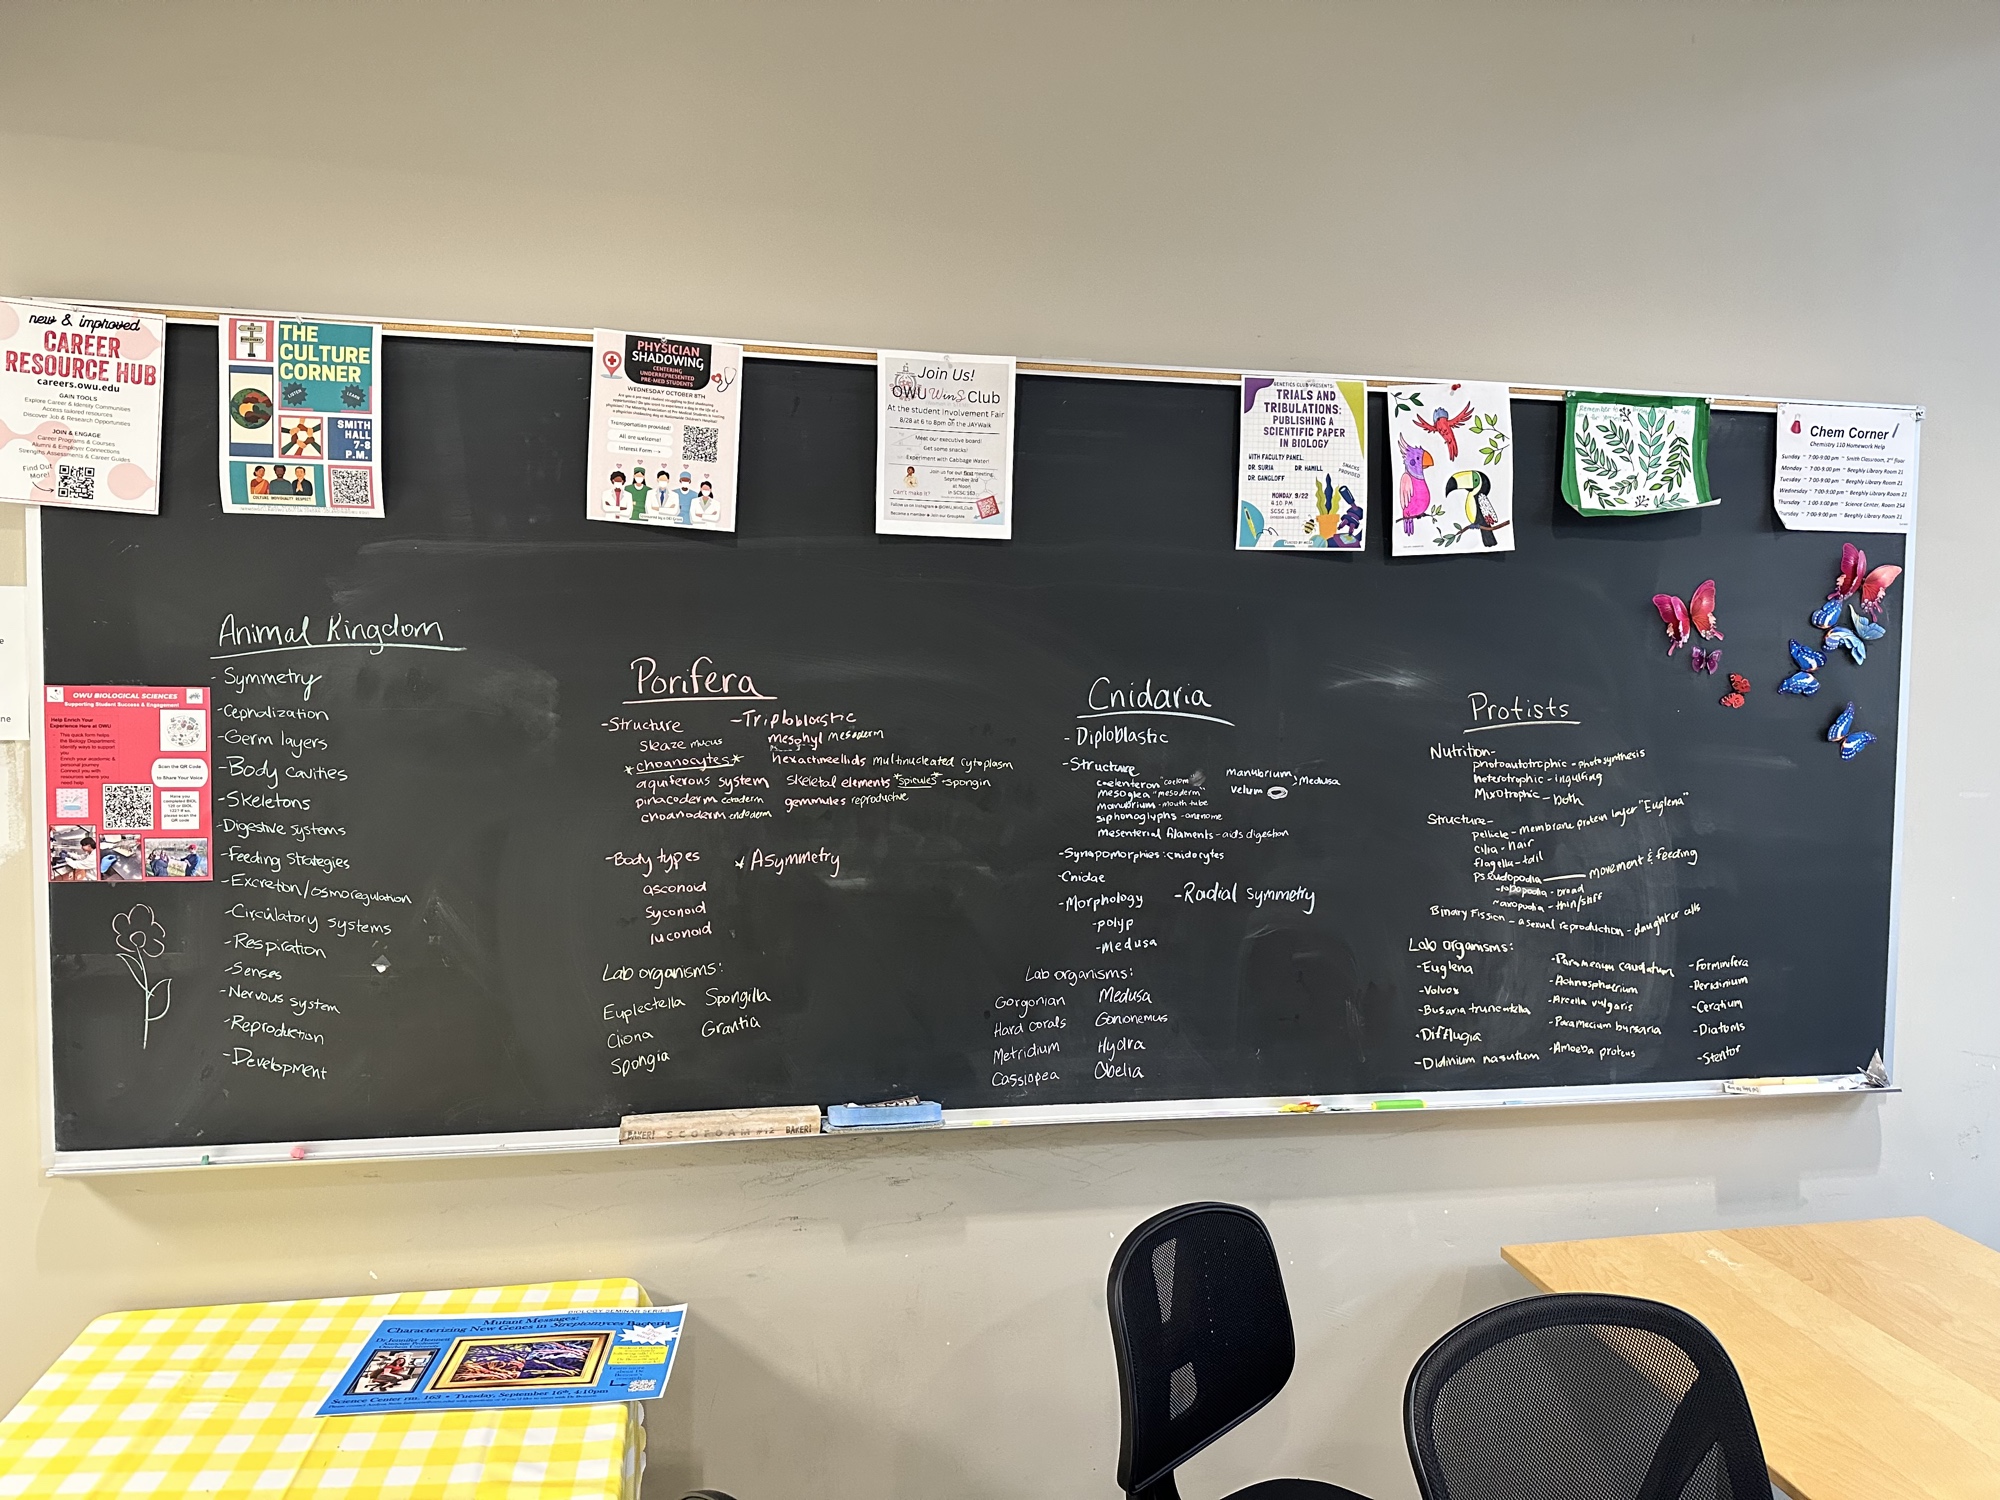 new & improved
CAREER
RESOURCE HUB
careers.owu.edu
GAIN TOOLS
Explore Career & Identity Communities
Access tailored resources
Discover Job & Research Opportunities
JOIN & ENGAGE
Career Programs & Courses
Alumni & Employer Connections
Strengths Assessments & Career Guides
Find Out
More!
THE
CULTURE
CORNER
LISTEN
LEARN
SMITH
HALL
7-8
P.M.
CULTURE INDIVIDUALITY RESPECT
PHYSICIAN
SHADOWING
CENTERING
UNDERREPRESENTED
PRE-MED STUDENTS
WEDNESDAY OCTOBER 8TH
Transportation provided!
All are welcome!
Interest Form
Join Us!
OWU WinS Club
At the student Involvement Fair
8/28 at 6 to 8pm on the JAYWalk
Meet our executive board!
Get some snacks!
Experiment with Cabbage Water!
Join us for our first meeting
September 3rd
at Noon
in SCSC 163
Can't make it?
Follow us on Instagram
Become a member Join our GroupMe
GENETICS CLUB PRESENTS:
TRIALS AND
TRIBULATIONS:
PUBLISHING A
SCIENTIFIC PAPER
IN BIOLOGY
WITH FACULTY PANEL
DR. SURIA DR. HAMILL
DR. GANGLOFF
SNACKS
PROVIDED
MONDAY 9/22
4:10 PM
SCSC 176
Remember to
Chem Corner
Chemistry 110 Homework Help
Sunday ~ 7:00-9:00 pm ~ Smith Classroom, 2nd floor
Monday ~ 7:00-9:00 pm ~ Beeghly Library Room 21
Tuesday ~ 7:00-9:00 pm ~ Beeghly Library Room 21
Wednesday ~ 7:00-9:00 pm ~ Beeghly Library Room 21
Thursday ~ 1:00-3:00 pm ~ Science Center, Room 254
Thursday ~ 7:00-9:00 pm ~ Beeghly Library Room 21
OWU BIOLOGICAL SCIENCES
Supporting Student Success & Engagement
Help Enrich Your
Experience Here at OWU
This quick form helps
the Biology Department
identify ways to support
you
Enrich your academic &
personal journey
Connect you with
resources where you
need help
Scan the QR Code
to Share Your Voice
Animal Kingdom
- Symmetry
- Cephalization
- Germ layers
- Body cavities
- Skeletons
- Digestive systems
- Feeding Strategies
- Excretion/osmoregulation
- Circulatory systems
- Respiration
- Senses
- Nervous system
- Reproduction
- Development
Porifera
- Structure
Sleaze mucus
*choanocytes*
aquiferous system
pinacoderm ectoderm
choanoderm endoderm
- Triploblastic
mesohyl mesoderm
hexactinellids multinucleated cytoplasm
Skeletal elements *spicules* - spongin
gemmules reproductive
- Body types
asconoid
Syconoid
luconoid
* Asymmetry
Lab organisms:
Euplectella Spongilla
Cliona Grantia
Spongia
Cnidaria
- Diploblastic
- Structure
coelenteron "coelom"
mesoglea "mesoderm"
manubrium - mouth tube
siphonoglyphs - anenome
mesenterial filaments - aids digestion
manubrium
velum
Medusa
- Synapomorphies: cnidocytes
- Cnidae
- Morphology
- polyp
- medusa
- Radial symmetry
Lab organisms:
Gorgonian Medusa
Hard corals Gonionemus
Metridium Hydra
Cassiopea Obelia
Protists
Nutrition-
photoautotrophic - photosynthesis
heterotrophic - ingulfing
Mixotrophic - both
Structure-
pellicle - membrane protein layer "Euglena"
cilia - hair
flagella - tail
pseudopodia — movement & feeding
- lobopodia - broad
- axopodia - thin/stiff
Binary Fission - asexual reproduction - daughter cells
Lab organisms:
- Euglena
- Volvox
- Bursaria truncatella
- Difflugia
- Didinium nasutum
- Paramecium caudatum
- Actinosphaerium
- Arcella vulgaris
- Paramecium bursaria
- Amoeba proteus
- Forminifera
- Peridinium
- Ceratium
- Diatoms
- Stentor
BAKER! SCOFOAM #12 BAKER!
BIOLOGY SEMINAR SERIES
Mutant Messages:
Characterizing New Genes in Streptomyces Bacteria
Science Center rm. 163 • Tuesday, September 16th, 4:10pm